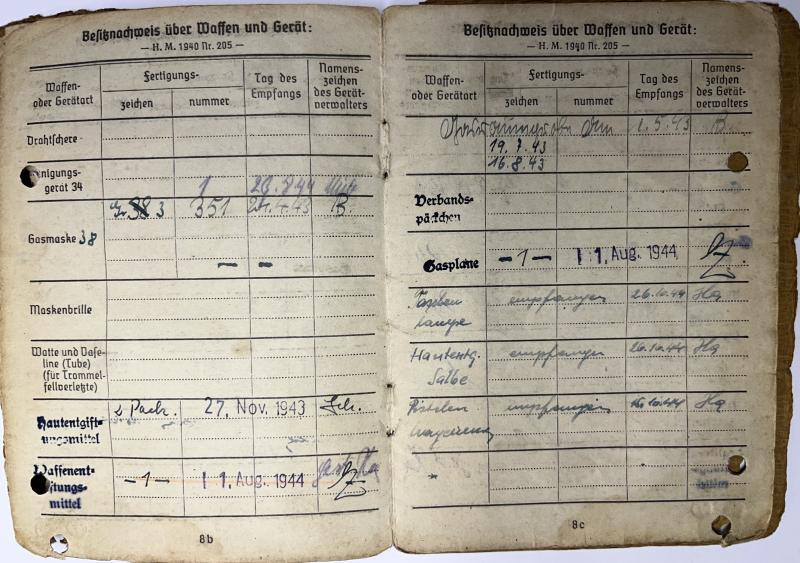 Besitznachweis über Waffen und Gerät:
— H. M. 1940 Nr. 205 —
Waffen- oder Gerätart
Fertigungs-
zeichen
nummer
Tag des Empfangs
Namens- zeichen des Gerät- verwalters
Drahtschere
gerät 34 1 44
Gasmaske 38 351 43 B.
Maskenbrille
Watte und Vase-
line (Tube)
(für Trommel-
fellverletzte)
Hautentgift-
ungsmittel
2 Pack. 27. Nov. 1943
Waffenent-
mittel
— 1 — 1 1. Aug. 1944
8b
Besitznachweis über Waffen und Gerät:
— H. M. 1940 Nr. 205 —
Waffen- oder Gerätart
Fertigungs-
zeichen
nummer
Tag des Empfangs
Namens- zeichen des Gerät- verwalters
1. 5. 43 B.
19. 7. 43
16. 8. 43
Verbands-
päckchen
Gasplane — 1 — 1 1. Aug. 1944
Taschen empfangen 26.10.44 Hg
lampe
Hautentg. empfangen 26.10.44 Hg
Salbe
Pistolen empfangen 10.44 Hg
8c